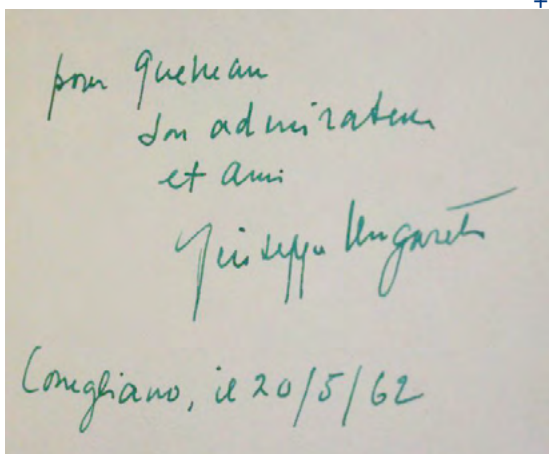 pour Queneau
son admirateur
et ami
Giuseppe Ungaretti
Conegliano, il 20/5/62